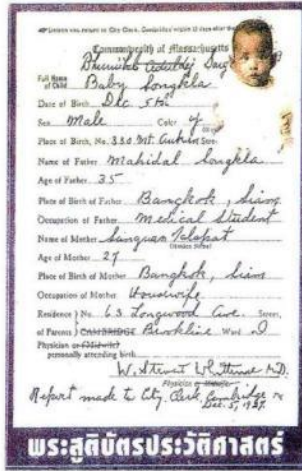 Commonwealth of Massachusetts
Full Name
of Child Baby Songkla
Date of Birth Dec 5th
Sex Male Color y
Place of Birth, No. 330 Mt. Auburn Street
Name of Father Mahidal Songkla
Age of Father 35
Place of Birth of Father Bangkok, Siam
Occupation of Father Medical Student
Name of Mother Sanguan
Age of Mother 27
Place of Birth of Mother Bangkok, Siam
Occupation of Mother Housewife
Residence No. 63 Longwood Ave. Street,
of Parents CAMBRIDGE Brookline Ward
Physician or (Midwife)
personally attending birth
W. Stewart Whittemore M.D.
Physician or Midwife
Report made to City Clerk, Cambridge
Dec. 5, 1927.
พระสูติบัตรประวัติศาสตร์